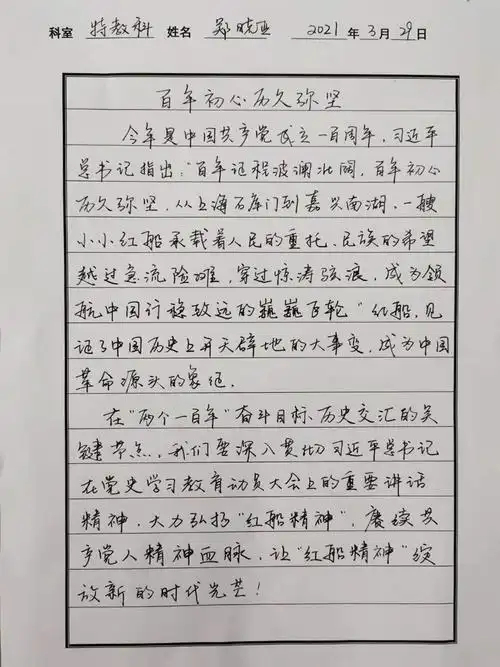 科室 特教科 姓名 郑晓亚 2021 年 3 月 29 日
百年初心历久弥坚
今年是中国共产党成立一百周年，习近平
总书记指出："百年征程波澜壮阔，百年初心
历久弥坚，从上海石库门到嘉兴南湖，一艘
小小红船承载着人民的重托、民族的希望
越过急流险滩，穿过惊涛骇浪，成为领
航中国行稳致远的巍巍巨轮"红船，见
证了中国历史上开天辟地的大事变，成为中国
革命源头的象征。
在"两个一百年"奋斗目标、历史交汇的关
键节点，我们要深入贯彻习近平总书记
在党史学习教育动员大会上的重要讲话
精神，大力弘扬"红船精神"，赓续共
产党人精神血脉，让"红船精神"绽
放新的时代光芒！